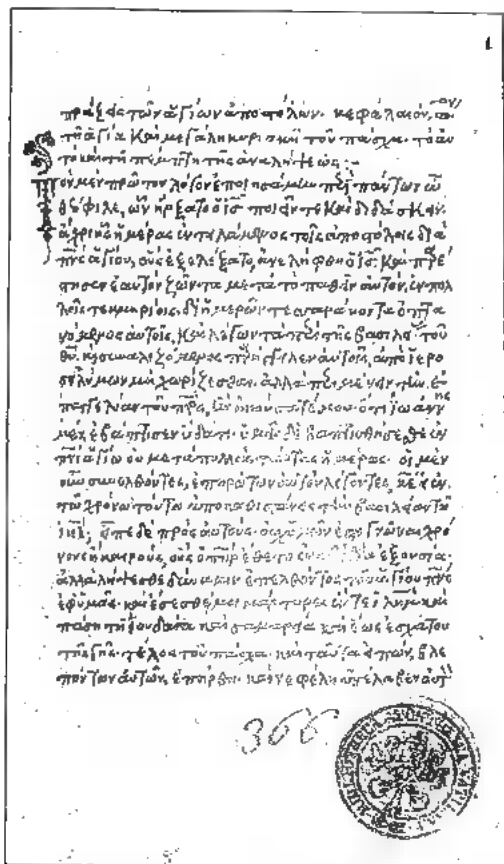 1
πράξεις τῶν ἁγίων ἀποστόλων. κεφάλαιον.
τῇ ἁγία καὶ μεγάλη κυριακῇ τοῦ πάσχα. τὸ αυ
τὸ καὶ τῆ πέμπτη τῆς ἀναλήψεως :~
Τὸν μὲν πρῶτον λόγον ἐποιησάμην περὶ πάντων ὦ
θεόφιλε, ὧν ἤρξατο ὁ ἰς ποιεῖν τε καὶ διδάσκειν.
ἄχρι ἧς ἡμέρας ἐντειλάμενος τοῖς ἀποστόλοις διὰ
πνς ἁγίου, οὓς ἐξελέξατο, ἀνελήφθη οἷς καὶ παρέ
στησεν ἑαυτὸν ζῶντα μετὰ τὸ παθεῖν αὐτὸν, ἐν πολ
λοῖς τεκμηρίοις. δι' ἡμερῶν τεσσαράκοντα ὀπτα
νόμενος αὐτοῖς, καὶ λέγων τὰ περὶ τῆς βασιλείας τοῦ
θυ. καὶ συναλιζόμενος παρήγγειλεν αὐτοῖς, ἀπὸ ἱερο
σολύμων μὴ χωρίζεσθαι. ἀλλὰ περιμένειν τὴν ἐ
παγγελίαν τοῦ πρς, ἣν ἠκούσατέ μου. ὅτι ἰωάννης
μὲν ἐβάπτισεν ὕδατι. ὑμεῖς δὲ βαπτισθήσεσθε ἐν
πνι ἁγίω οὐ μετὰ πολλὰς ταύτας ἡμέρας. οἱ μὲν
οὖν συνελθόντες, ἐπηρώτων αὐτὸν λέγοντες, κε εἰ ἐν
τῶ χρόνω τούτω ἀποκαθιστάνεις τὴν βασιλείαν τῶ
ιηλ; εἶπε δὲ πρὸς αὐτούς. οὐχ ὑμῶν ἐστι γνῶναι χρό
νους ἢ καιροὺς, οὓς ὁ πηρ ἔθετο ἐν τῆ ἰδία ἐξουσία.
ἀλλὰ λήψεσθε δύναμιν ἐπελθόντος τοῦ ἁγίου πνς
ἐφ' ὑμᾶς. καὶ ἔσεσθέ μοι μάρτυρες ἔν τε ιλημ καὶ
πάση τῆ ἰουδαία καὶ σαμαρεία καὶ ἕως ἐσχάτου
τῆς γῆς. τέλος τοῦ πάσχα. καὶ ταῦτα εἰπὼν, βλε
πόντων αὐτῶν, ἐπήρθη. καὶ νεφέλη ὑπέλαβεν αὐτὸν
366